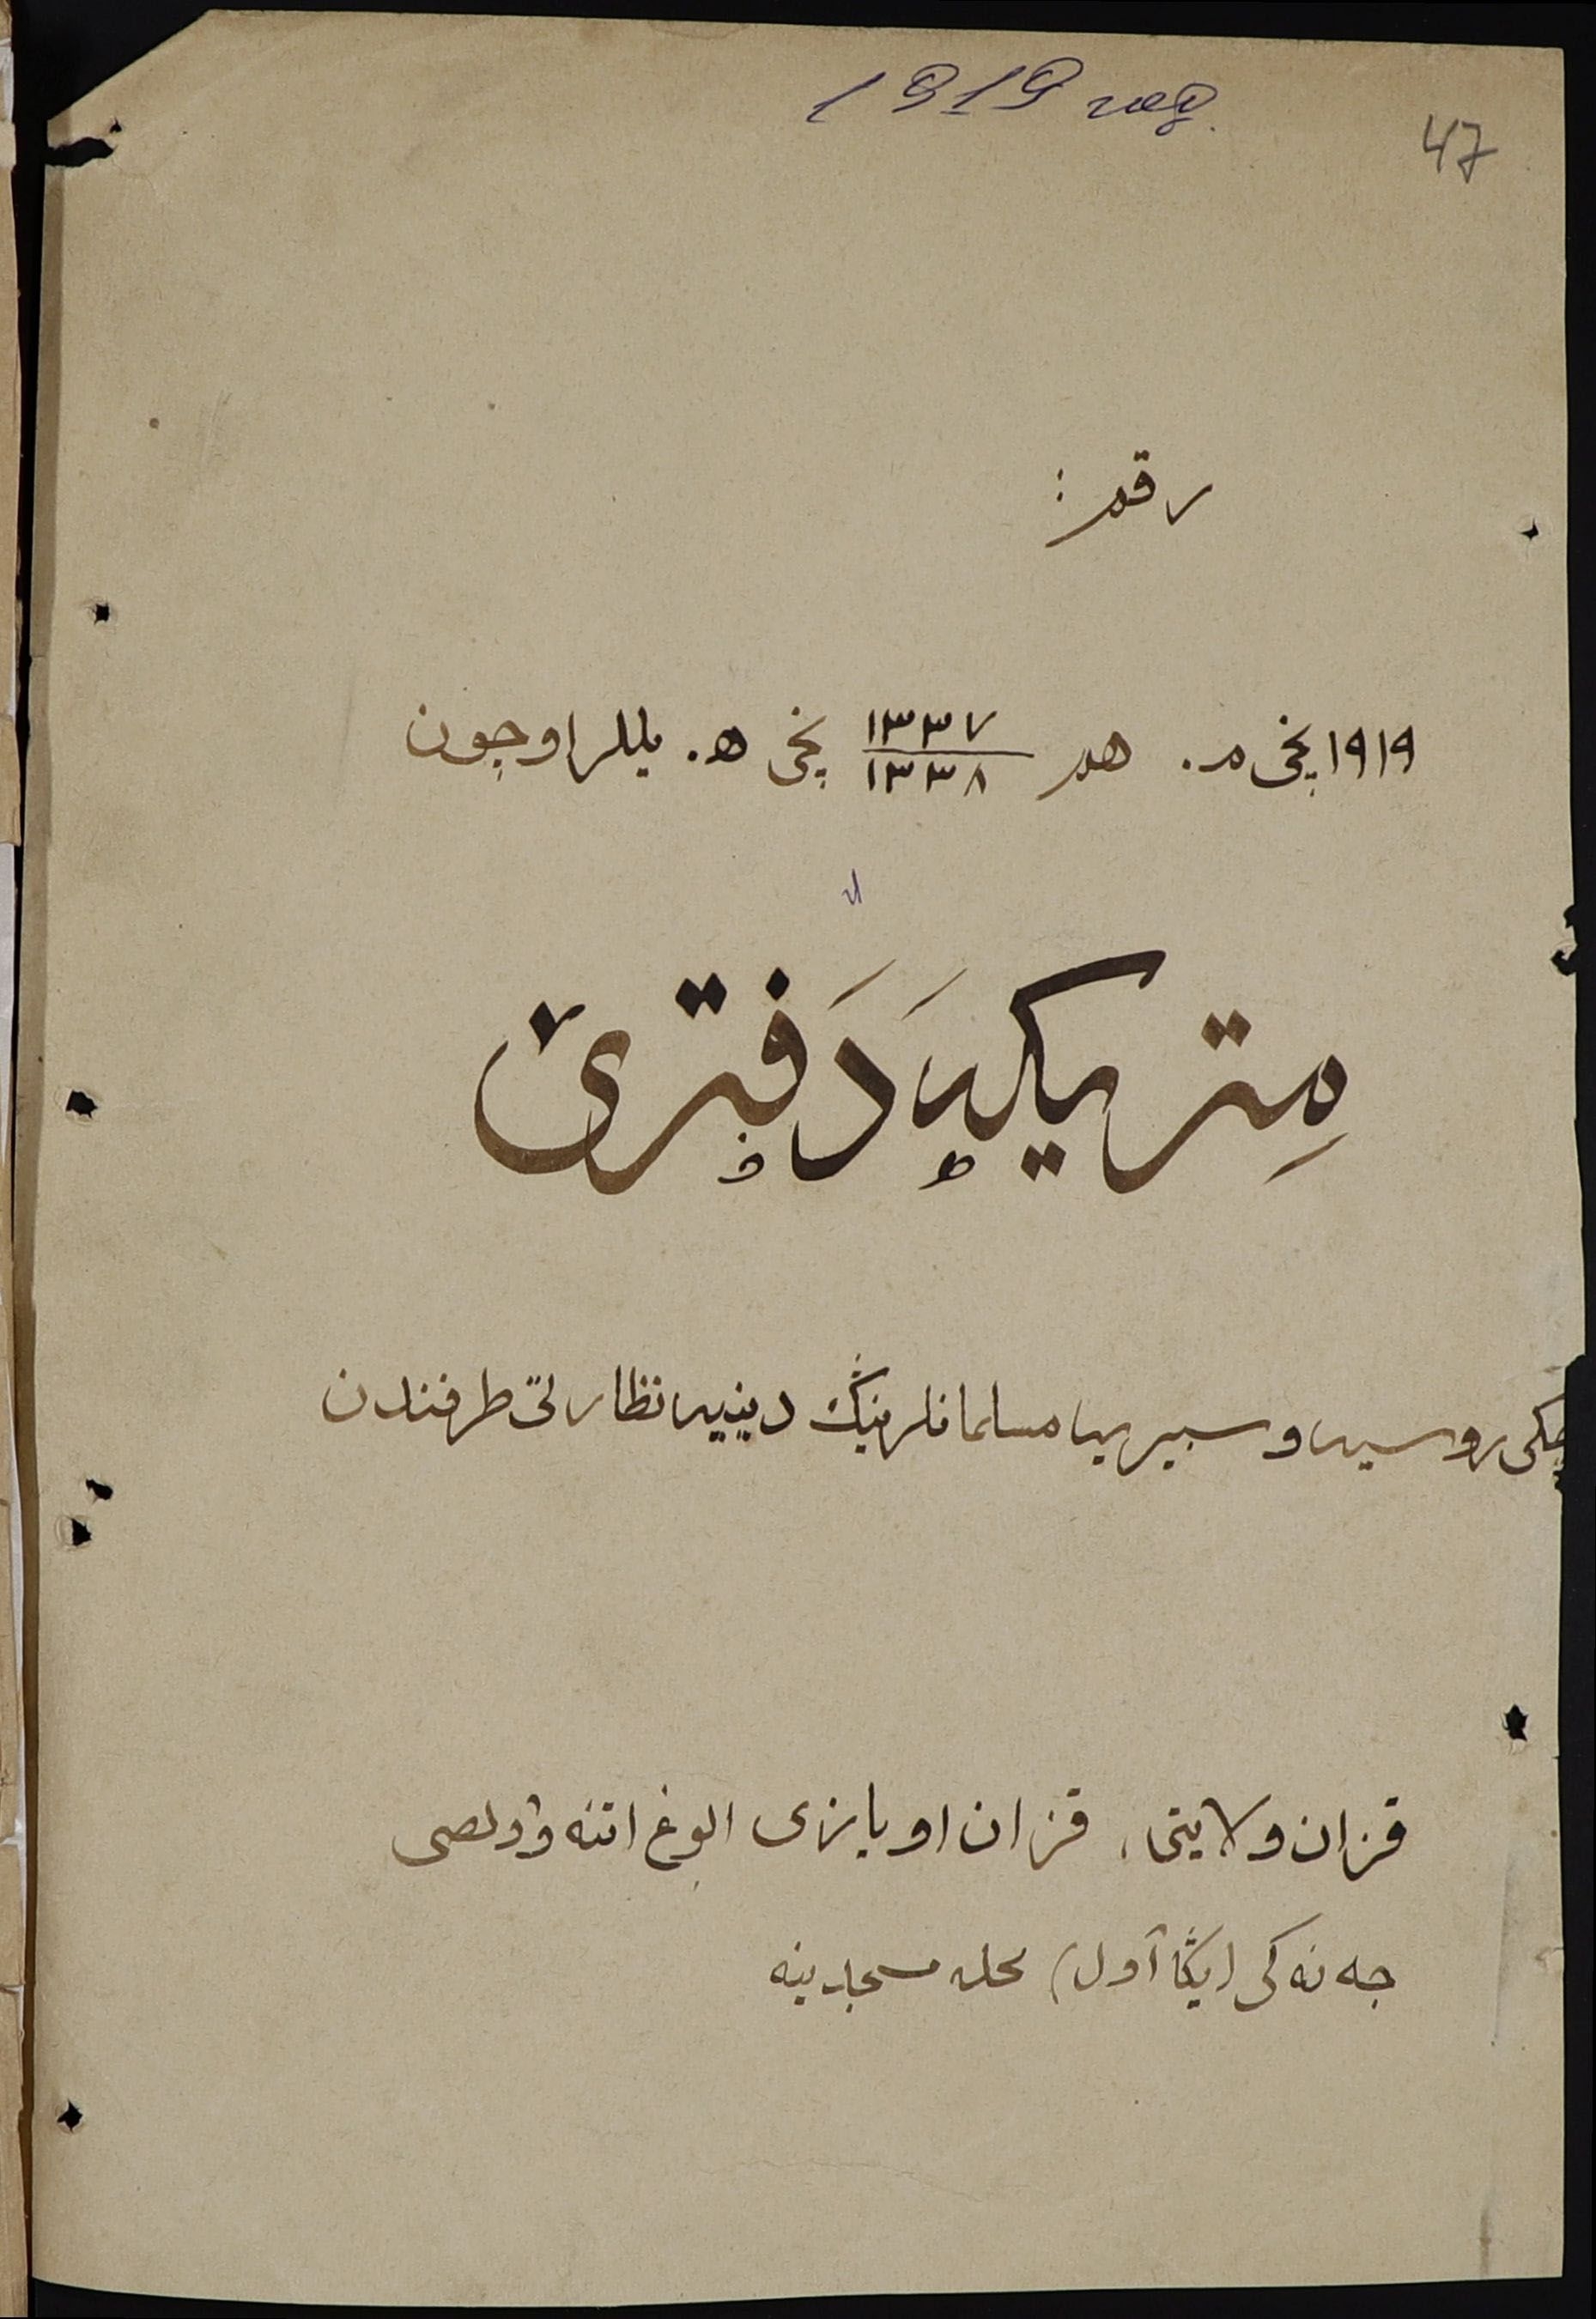 1919 год.
47
رقم:
١٩١٩ نچی م. هم ١٣٣٧/١٣٣٨ نچی ه. یللر اوچون
مِتریکه دَفتری
ایچکی روسیه و سیبیریا مسلمانلرینڭ دینیه نظارتی طرفندن
قزان ولایتی، قزان اویازی الوغ اتنه وۆلصی
جه نه کی (یڭا آول) محله مسجدینه